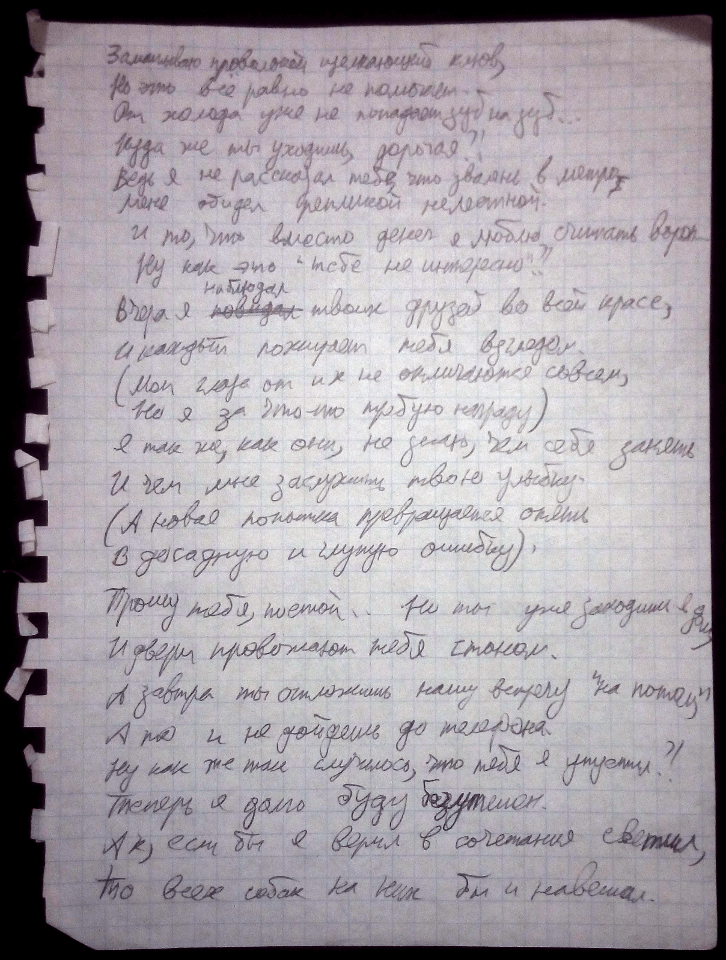 Заматываю проволокой щелкающий клюв,
Но это всё равно не помогает.
От холода уже не попадает зуб на зуб...
Куда же ты уходишь, дорогая?!
Ведь я не рассказал тебе, что звалень в метро
Меня обидел репликой нелестной.
И то, что вместо денег я люблю считать ворон
Ну как это "тебе не интересно"?!
наблюдал
Вчера я повидал твоих друзей во всей красе,
И каждый пожирает тебя взглядом.
(Мои глаза от их не отличаются совсем,
Но я за что-то требую награду)
Я так же, как они, не знаю, чем себя занять
И чем мне заслужить твою улыбку.
(А новая попытка превращается опять
В досадную и глупую ошибку).
Прошу тебя, постой... Но ты уже заходишь в дом,
И двери провожают тебя стоном.
А завтра ты отложишь нашу встречу "на потом,"
А то и не дойдешь до телефона.
Ну как же так случилось, что тебя я упустил?!
Теперь я долго буду безутешен.
Ах, если бы я верил в сочетания светил,
То всех собак на них бы и навешал.